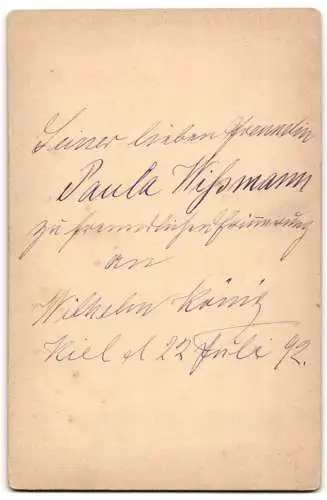 Seiner lieben Freundin
Paula Wißmann
zu freundlichen Erinnerung
an
Wilhelm König
Kiel d 22 Juli 92.